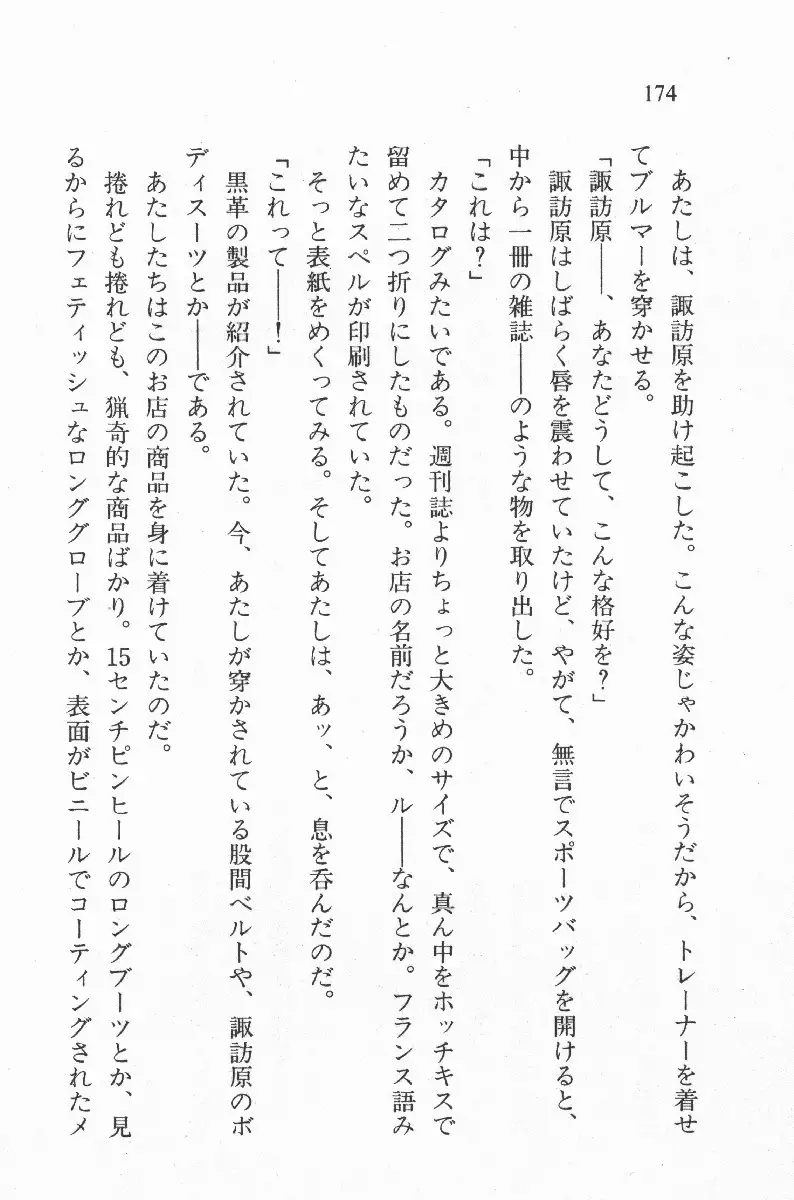 174
あたしは、諏訪原を助け起こした。こんな姿じゃかわいそうだから、トレーナーを着せ
てブルマーを穿かせる。
「諏訪原――、あなたどうして、こんな格好を?」
諏訪原はしばらく唇を震わせていたけど、やがて、無言でスポーツバッグを開けると、
中から一冊の雑誌――のような物を取り出した。
「これは?」
カタログみたいである。週刊誌よりちょっと大きめのサイズで、真ん中をホッチキスで
留めて二つ折りにしたものだった。お店の名前だろうか、ル――なんとか。フランス語み
たいなスペルが印刷されていた。
そっと表紙をめくってみる。そしてあたしは、あッ、と、息を呑んだのだ。
「これって――!」
黒革の製品が紹介されていた。今、あたしが穿かされている股間ベルトや、諏訪原のボ
ディスーツとか――である。
あたしたちはこのお店の商品を身に着けていたのだ。
捲れども捲れども、猟奇的な商品ばかり。15センチピンヒールのロングブーツとか、見
るからにフェティッシュなロンググローブとか、表面がビニールでコーティングされたメ